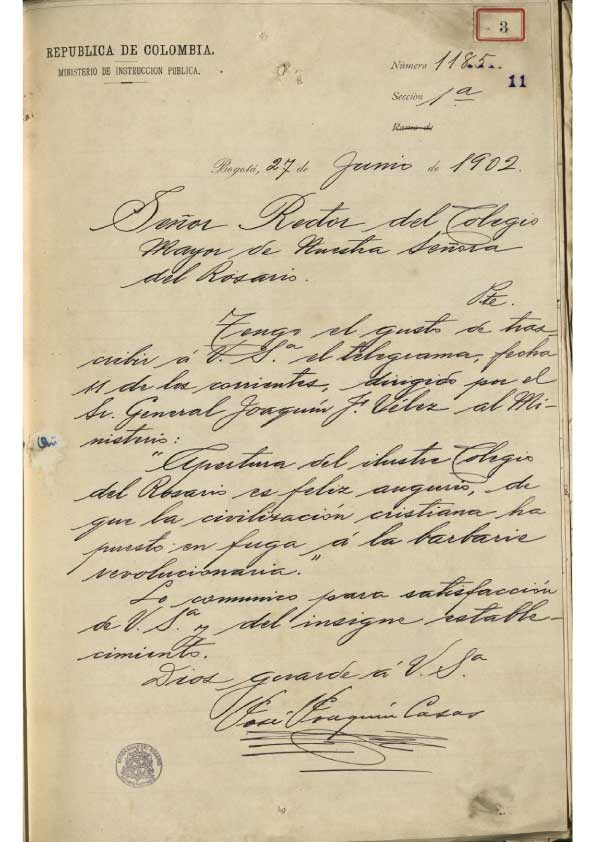 3
REPUBLICA DE COLOMBIA.
MINISTERIO DE INSTRUCCION PUBLICA.
Número 1185.
11
Sección 1ª
Ramo de
Bogotá, 27 de Junio de 1902.
Señor Rector del Colegio
Mayor de Nuestra Señora
del Rosario.
Pte.
Tengo el gusto de tras
cribir á V. Sª el telegrama, fecha
11 de los corrientes, dirigido por el
Sr. General Joaquín F. Vélez al Mi-
nisterio:
"Apertura del ilustre Colegio
del Rosario es feliz augurio, de
que la civilización cristiana ha
puesto en fuga á la barbarie
revolucionaria."
Lo comunico para satisfacción
de V. Sª y del insigne estable-
cimiento.
Dios guarde á V. Sª
José Joaquín Casas